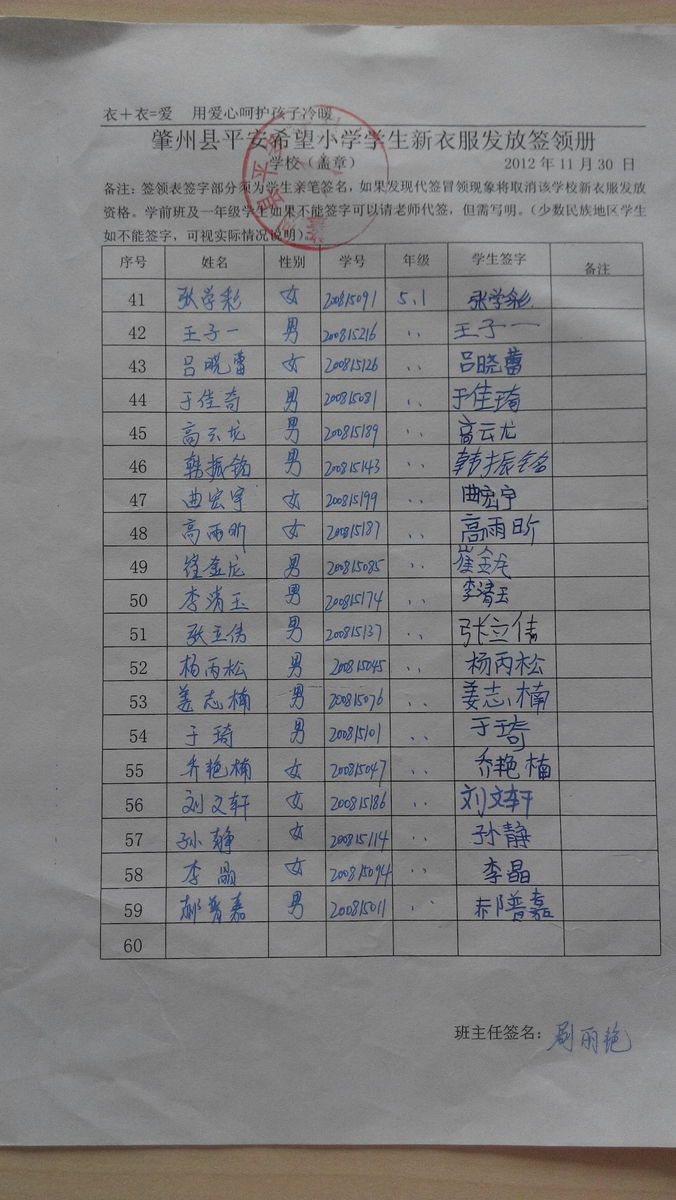 衣＋衣=爱 用爱心呵护孩子冷暖
肇州县平安希望小学学生新衣服发放签领册
学校（盖章） 2012 年 11 月 30 日
备注：签领表签字部分须为学生亲笔签名，如果发现代签冒领现象将取消该学校新衣服发放
资格。学前班及一年级学生如果不能签字可以请老师代签，但需写明。（少数民族地区学生
如不能签字，可视实际情况说明）。
序号 姓名 性别 学号 年级 学生签字 备注
41 张学彩 女 200815091 5.1 张学彩
42 王子一 男 200815216 ,, 王子一
43 吕晓蕾 女 200815126 ,, 吕晓蕾
44 于佳奇 男 200815081 ,, 于佳琦
45 高云龙 男 200815189 ,, 高云龙
46 韩振铭 男 200815143 ,, 韩振铭
47 曲宏宇 女 200815199 ,, 曲宏宇
48 高雨昕 女 200815187 ,, 高雨昕
49 金龙 男 200815085 ,, 崔金龙
50 李清玉 男 200815174 ,, 李清玉
51 张立伟 男 200815137 ,, 张立伟
52 杨丙松 男 200815045 ,, 杨丙松
53 姜志楠 男 200815076 ,, 姜志楠
54 于琦 男 200815101 ,, 于琦
55 乔艳楠 女 200815047 ,, 乔艳楠
56 刘文轩 女 200815186 ,, 刘文轩
57 孙静 女 200815114 ,, 孙静
58 李晶 女 200815094 ,, 李晶
59 郝普嘉 男 200815011 ,, 郝普嘉
60
班主任签名： 丽艳